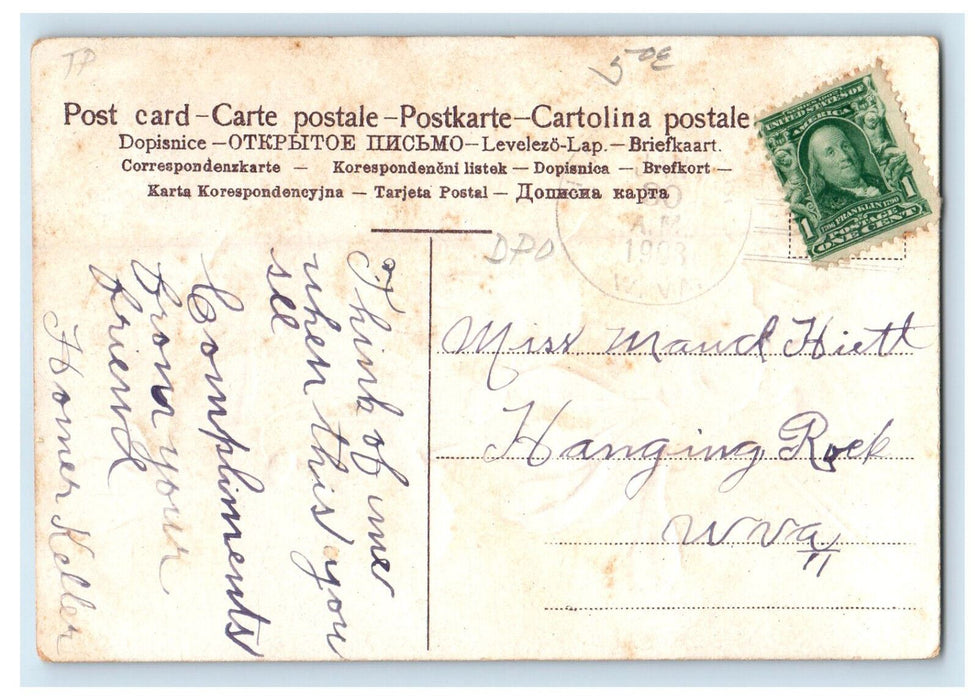 TP
5 0E
Post card – Carte postale – Postkarte – Cartolina postale
Dopisnice – ОТКРЫТОЕ ПИСЬМО – Levelező-Lap. – Briefkaart.
Correspondenzkarte – Korespondenčni listek – Dopisnica – Brefkort –
Karta Korespondencyjna – Tarjeta Postal – Дописна карта
UNITED STATES OF
AMERICA
1706 FRANKLIN 1790
1 POSTAGE 1
ONE CENT
DPO
A.M.
190
W.VA.
Think of me
when this you
see
Compliments
from your
friend
Homer Keller
Miss Maud Hiett
Hanging Rock
W Va